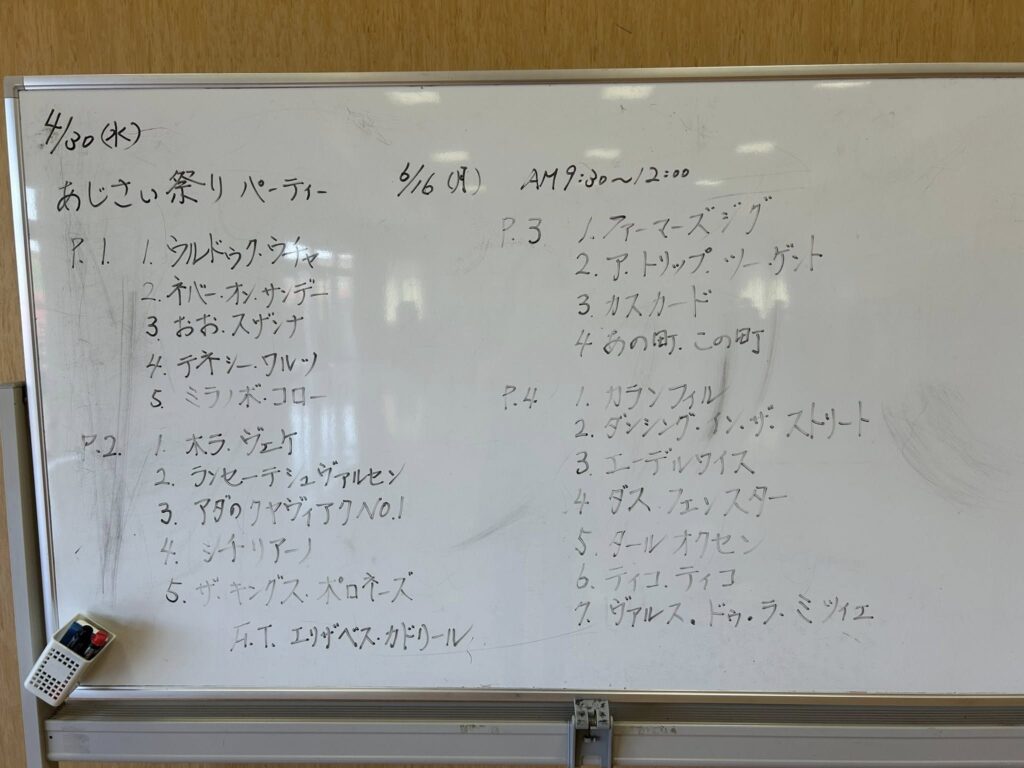 4/30(水)
あじさい祭り パーティー 6/16(月) AM9:30〜12:00
P.1. 1. ウルドゥク・ウチャ
2. ネバー・オン・サンデー
3 おお・スザンナ
4. テネシー・ワルツ
5. ミラノボ・コロー
P.2. 1. ホラ・ヴェケ
2. ランセーデシュヴァルセン
3. アダのクヤヴィアクNO.1
4. シチリアーノ
5. ザ・キングス・ポロネーズ
F.T. エリザベス・カドリール
P.3 1. ファーマーズジグ
2. ア・トリップ・ツー・ゲント
3 カスカード
4 あの町・この町
P.4 1. カランフィル
2. ダンシング・イン・ザ・ストリート
3. エーデルワイス
4 ダス フェンスター
5 タール オクセン
6. ティコ・ティコ
7. ヴァルス・ドゥ・ラ・ミツィエ